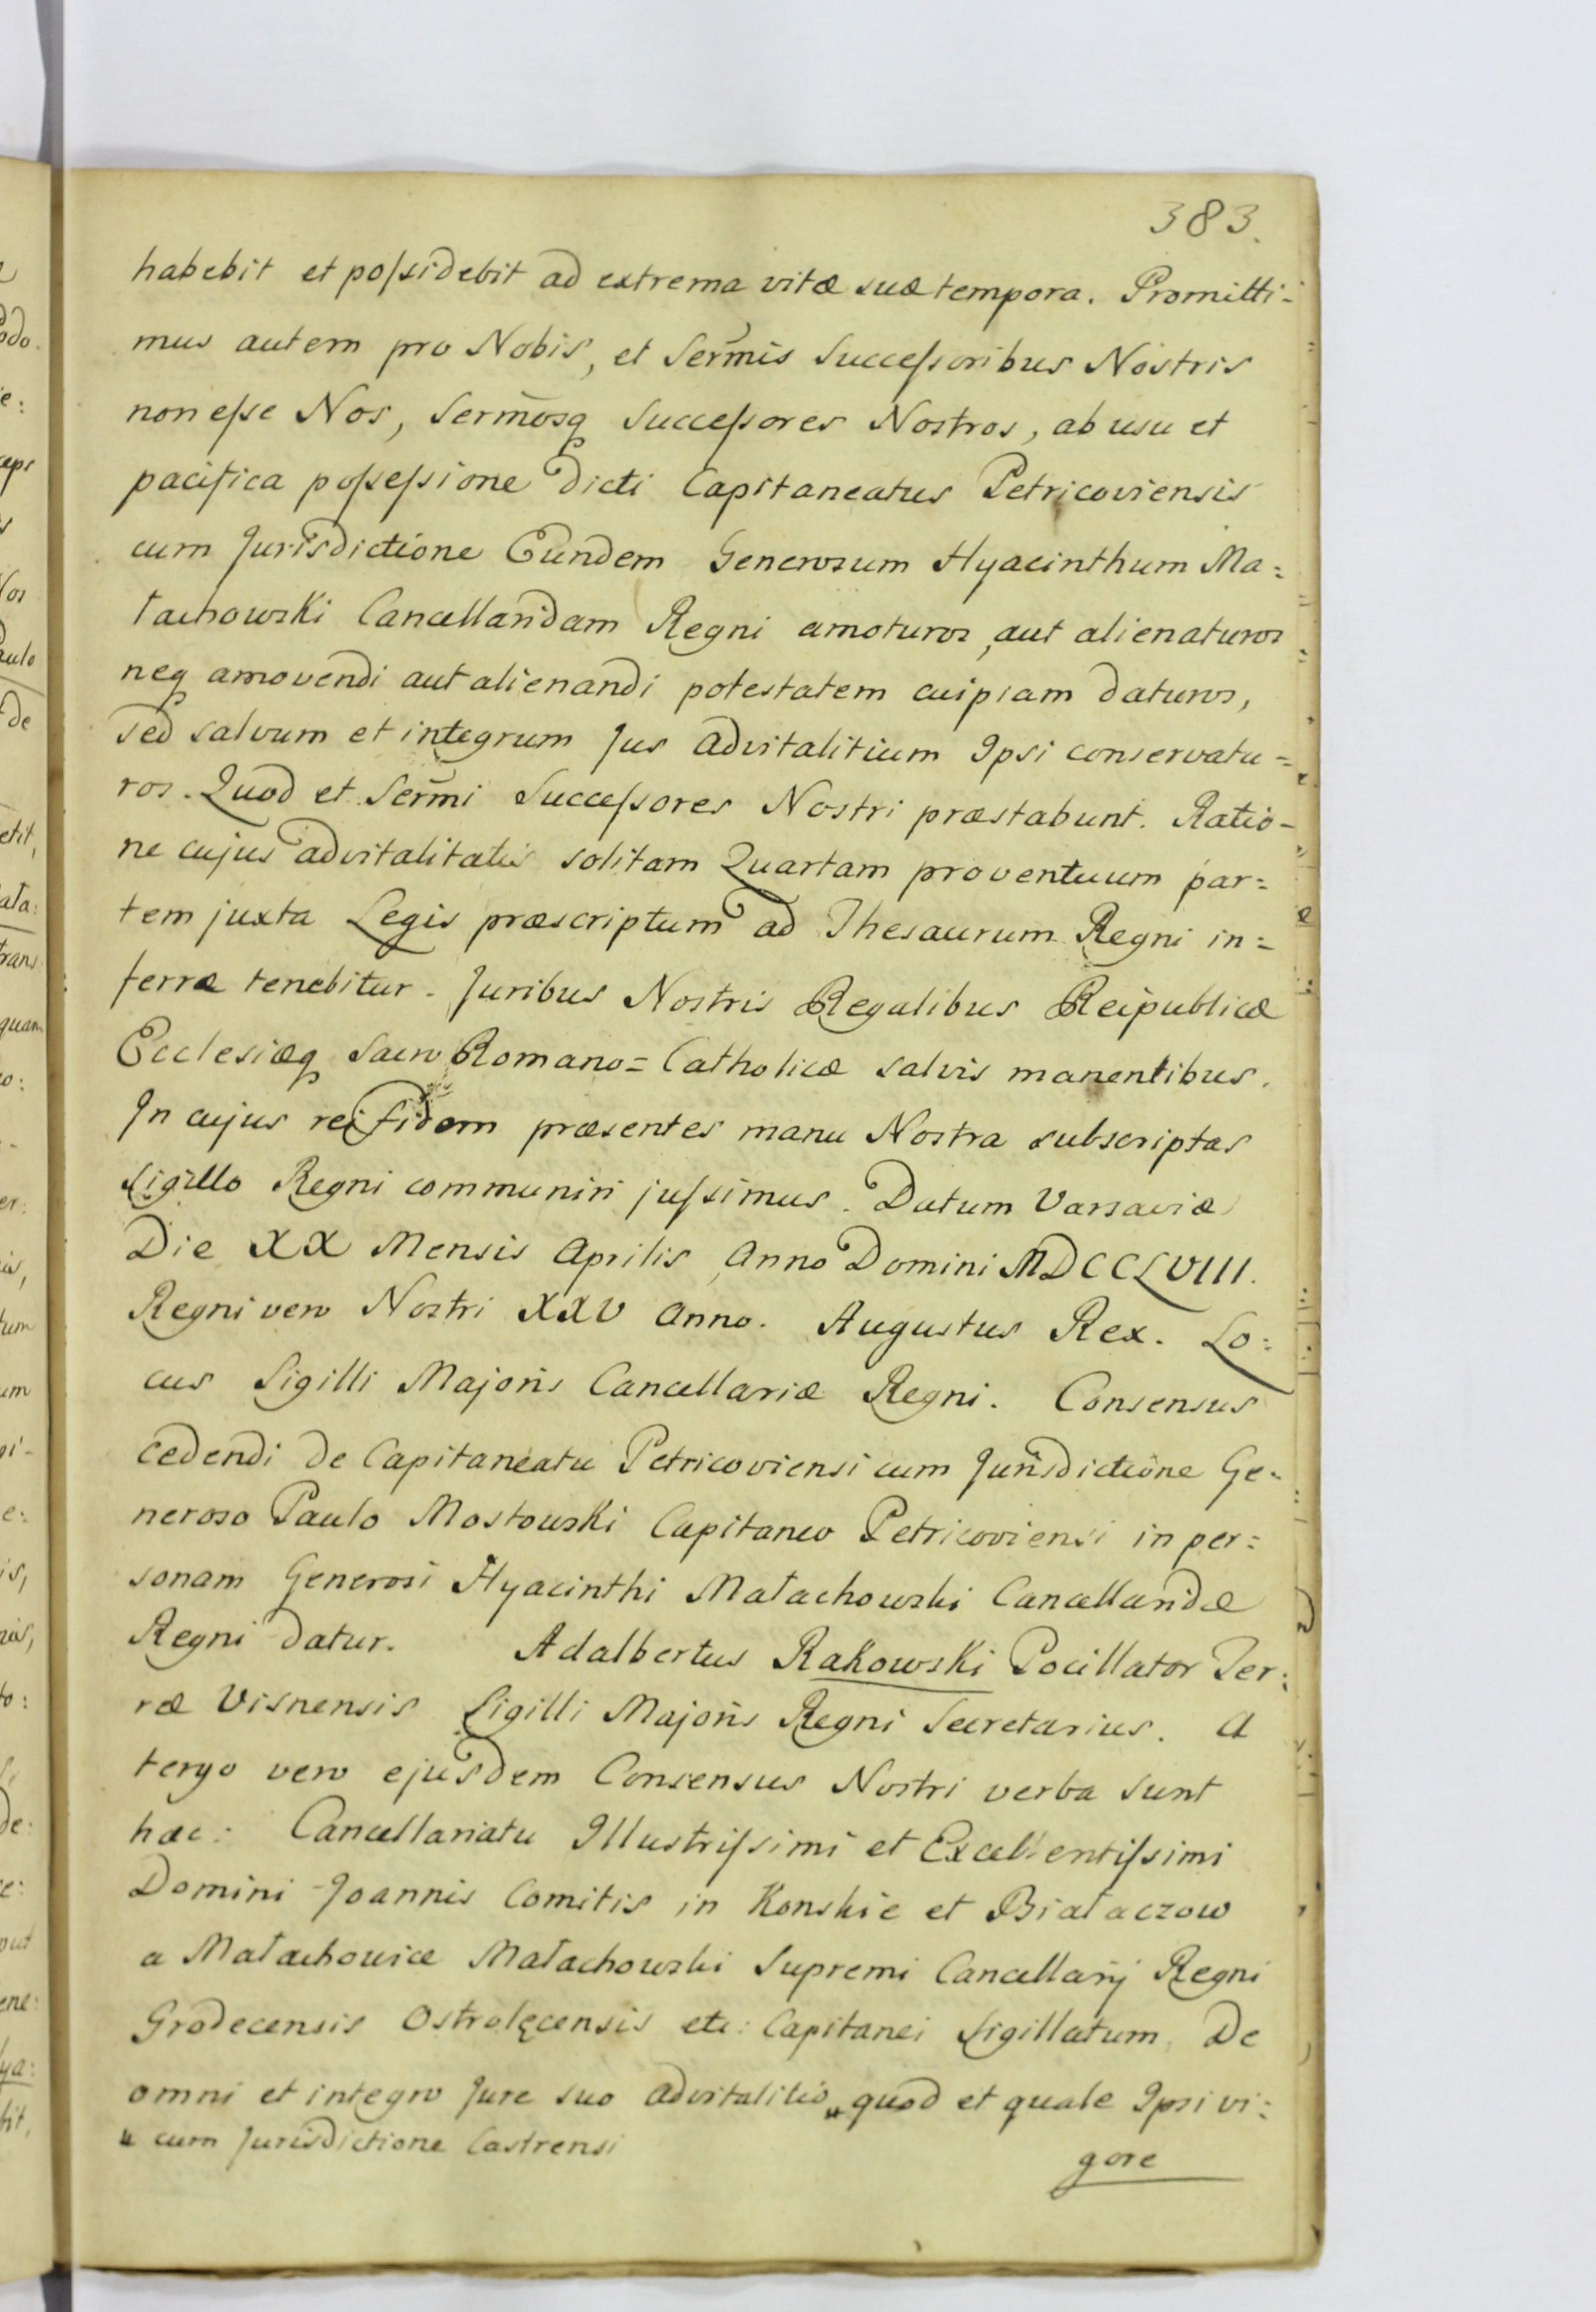 383.
habebit et possidebit ad extrema vitæ suæ tempora. Promitti-
mus autem pro Nobis, et Serm̄is Successoribus Nostris
non esse Nos, Serm̄osq Successores Nostros, ab usu et
pacifica possessione dicti Capitaneatus Petricoviensis
cum Jurisdictione Eundem Generosum Hyacinthum Ma=
łachowski Cancellaridam Regni amoturos, aut alienaturos
neq amovendi aut alienandi potestatem cuipiam daturos,
sed salvum et integrum Jus advitalitium Ipsi conservatu=
ros. Quod et Serm̄i Successores Nostri præstabunt. Ratio-
ne cujus advitalitatis solitam Quartam proventuum par=
tem juxta Legis præscriptum ad Thesaurum Regni in=
ferre tenebitur. Juribus Nostris Regalibus Reipublicæ
Ecclesiæq Sacro Romano=Catholicæ salvis manentibus.
In cujus rei fidem præsentes manu Nostra subscriptas
Sigillo Regni communiri jussimus. Datum Varsaviæ
Die XX Mensis Aprilis Anno Domini MDCCLVIII.
Regni vero Nostri XXV Anno. Augustus Rex. Lo=
cus Sigilli Majoris Cancellariæ Regni. Consensus
cedendi de Capitaneatu Petricoviensi cum Jurisdictione Ge-
neroso Paulo Mostowski Capitaneo Petricoviensi in per=
sonam Generosi Hyacinthi Małachowski Cancellaridæ
Regni datur. Adalbertus Rakowski Pocillator Ter=
ræ Visnensis Sigilli Majoris Regni Secretarius. A
tergo vero ejusdem Consensus Nostri verba sunt
hæc: Cancellariatu Illustrissimi et Excellentissimi
Domini Joannis Comitis in Konskie et Białaczow
a Małachowice Małachowski Supremi Cancellarij Regni
Grodecensis Ostrołęcensis etc: Capitanei Sigillatum. De
omni et integro Jure suo advitalitio „ quod et quale Ipsi vi=
„ cum Jurisdictione Castrensi
gore